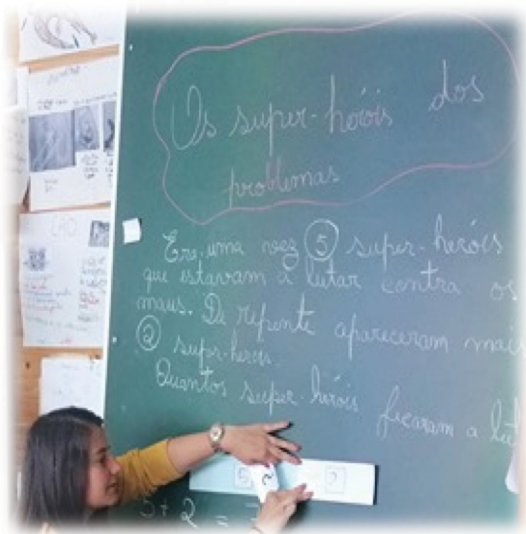 Os super-heróis dos
problemas
Era uma vez 5 super-heróis
que estavam a lutar contra os
maus. De repente apareceram mais
2 super-heróis.
Quantos super-heróis ficaram a lut
5 2
5 + 2 =
CÃO